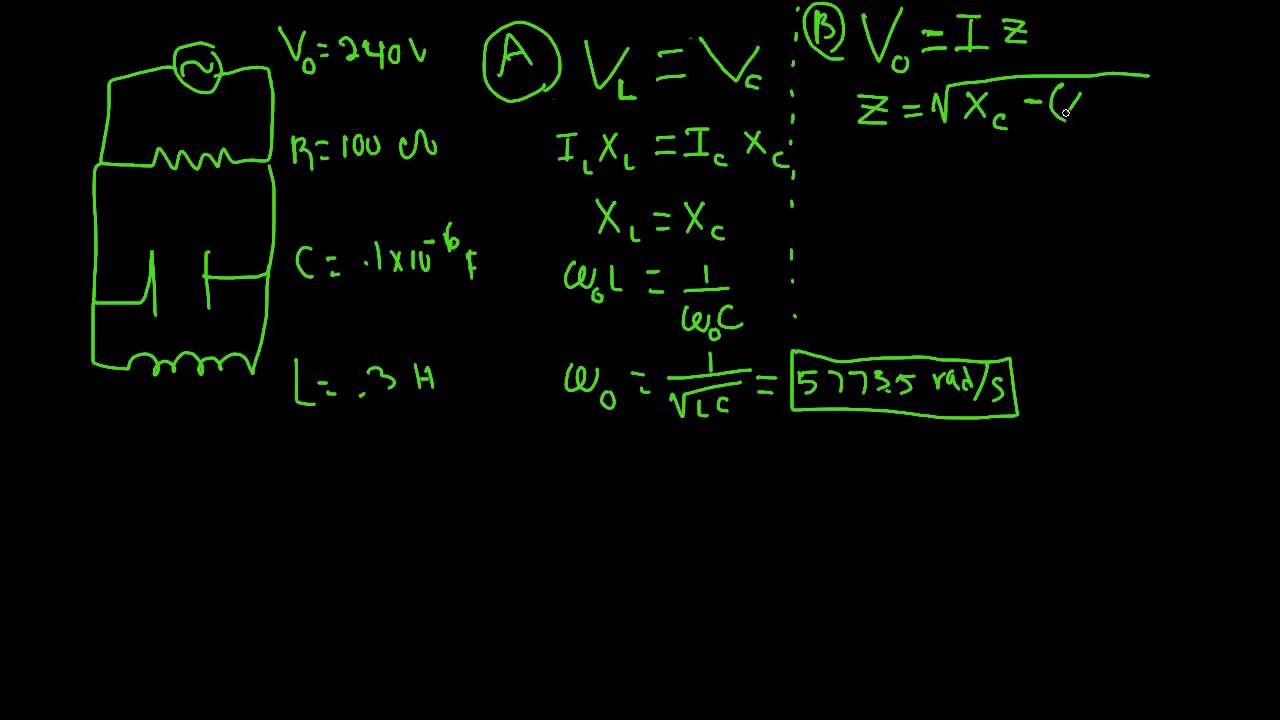 V₀ = 240 V
R = 100 Ω
C = .1x10⁻⁶ F
L = .3 H
A
V_L = V_C
I_L X_L = I_C X_C
X_L = X_C
ω₀L = 1/(ω₀C)
ω₀ = 1/√(LC) = 5773.5 rad/s
B
V₀ = I Z
Z = √X_C - (